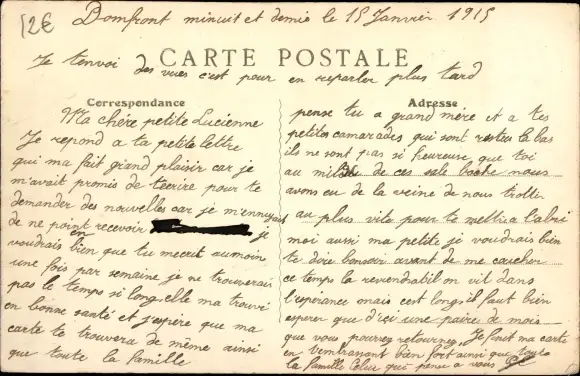 12€
Domfront minuit et demie le 15 Janvier 1915
Je tenvoi des vues c'est pour en reparler plus tard
CARTE POSTALE
Correspondance
Ma chère petite Lucienne
Je repond a ta petite lettre
qui ma fait grand plaisir car je
m'avait promis de técrire pour te
demander des nouvelles car je m'ennuyait
de ne point recevoir je
voudrais bien que tu mecrit au moin
une fois par semaine je ne trouverais
pas le temps si long, elle ma trouvé
en bonne santé et j'espère que ma
carte te trouvera de même ainsi
que toute la famille
Adresse
pense tu a grand mère et a tes
petites camarades qui sont restées la bas
ils ne sont pas si heureuse que toi
au milieu de ces sale boche nous
avons eu de la veine de nous trotter
au plus vite pour te mettre a l'abri
moi aussi ma petite je voudrais bien
te dire bonsoir avant de me coucher
ce temps la reviendra on vit dans
l'espérance mais cest long il faut bien
esperer que d'ici une paire de mois
que vous pourrez retourner, Je finit ma carte
en tembrassant bien fort ainsi que toute
la famille Celui qui pense a vous